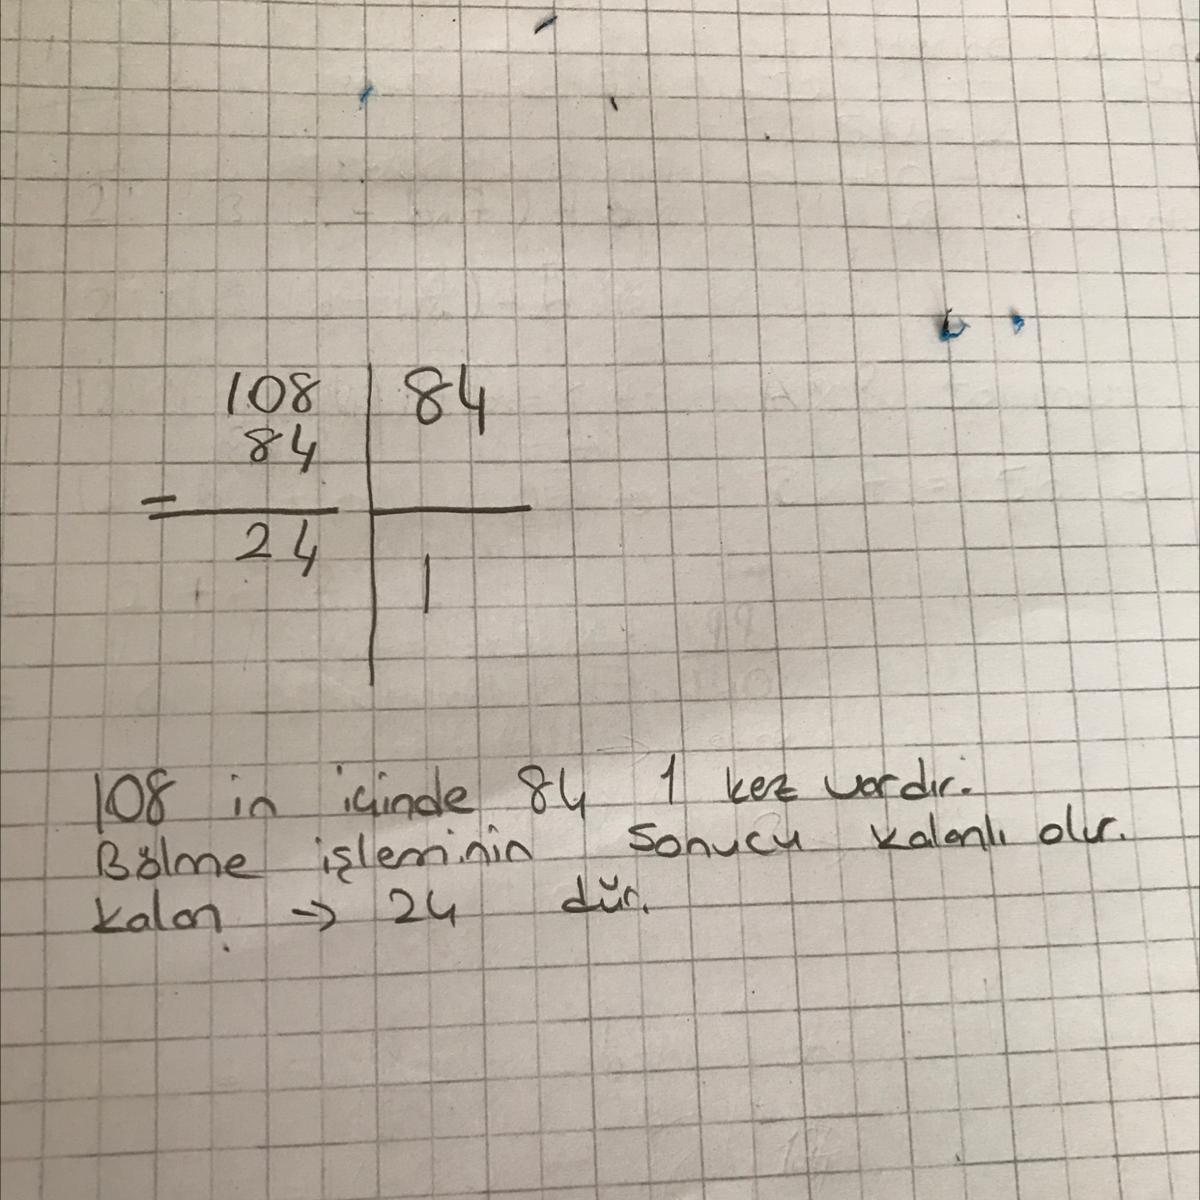 108 84
84
=
24
1
108 in içinde 84 1 kez vardır.
Bölme işleminin sonucu kalanlı olur.
kalan → 24 dür.